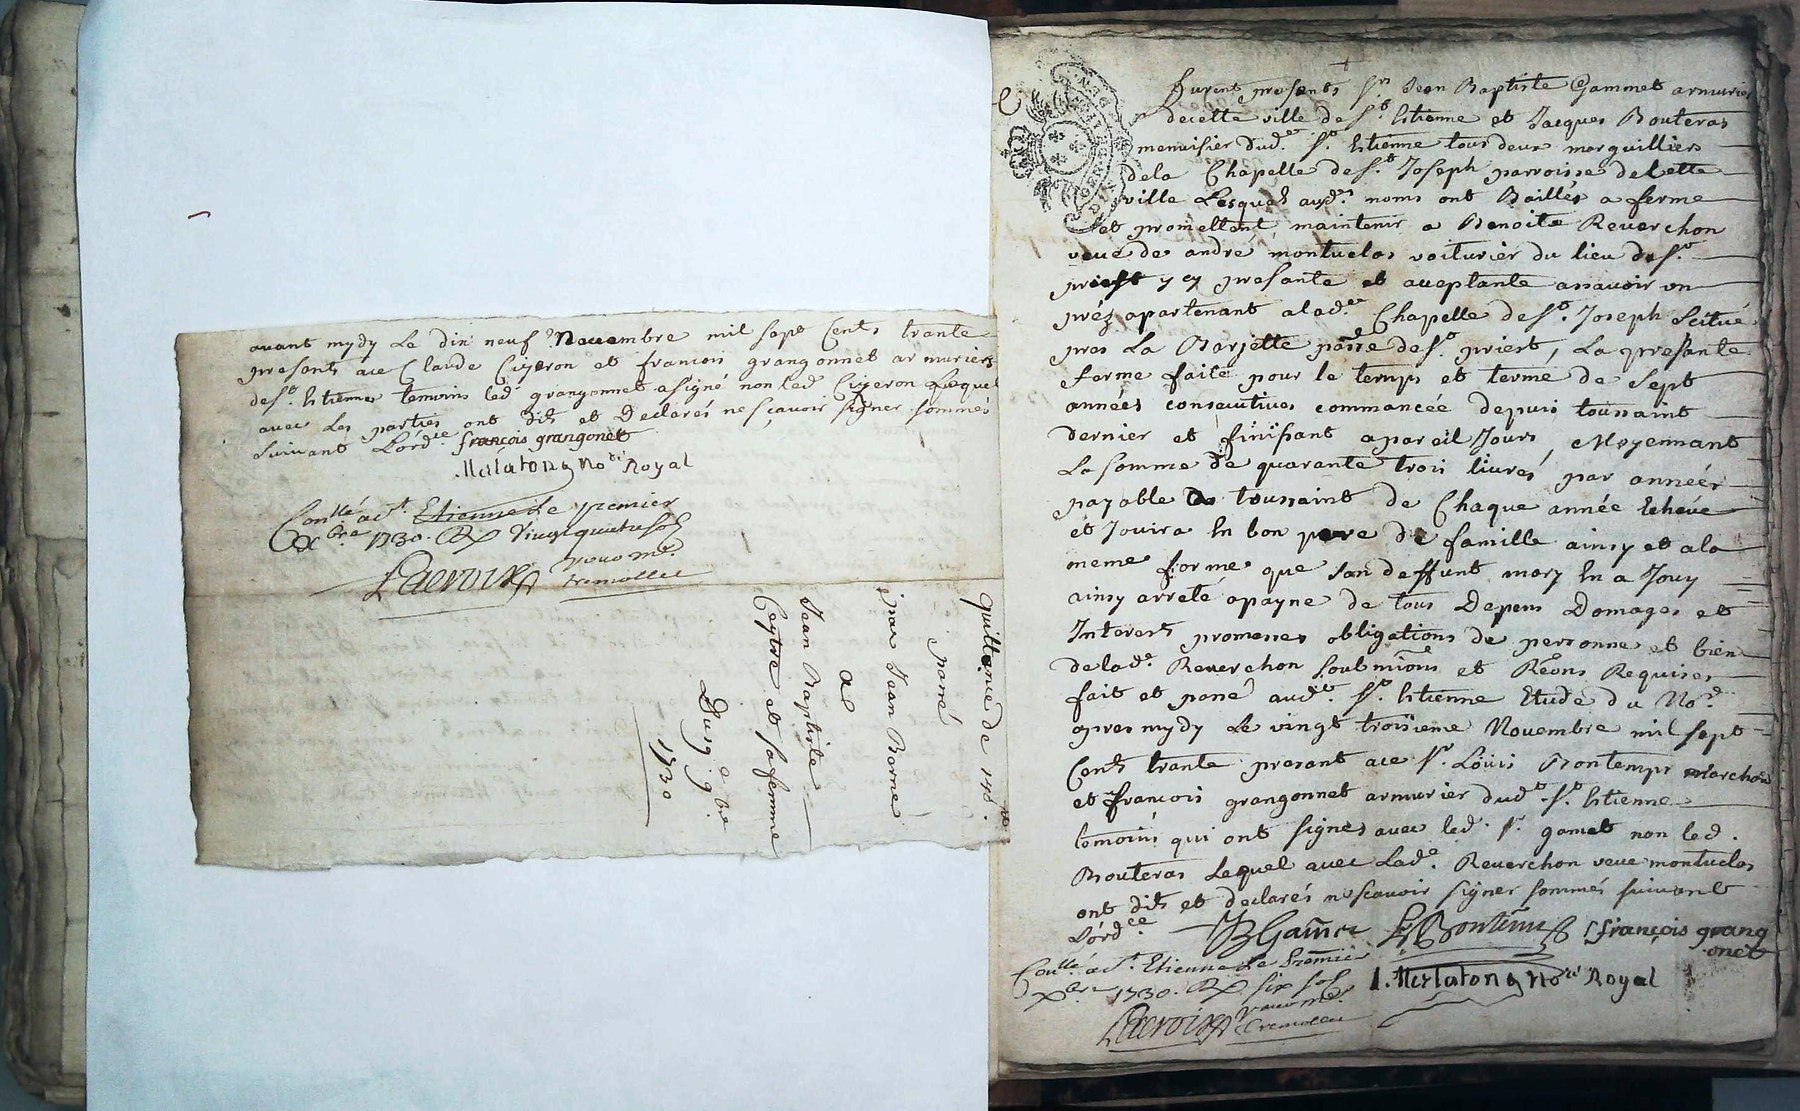 avant mydy Le dix neuf Novembre mil sept Cents trante
presents ave Claude Ciyeron et francois grangonnet armuriers
de st. Estienne temoins led grangonnet a signé non led Ciyeron Lequel
avec Les parties ont dit et Declarés ne sçavoir signer sommés
suivant L'ord.ce françois grangonet
No.re Royal
Con.llé a st. Etienne le premier
xbre 1730. Rx vingt quatre sols
Lacroix
Tremollet
quittance de 145.
passé
par Jean Borne
a
Jean Baptiste
Ceytre et sa femme
Du 19 9bre
1730
furent presents sr Jean Baptiste Gammet armurier
de cette ville de st. Estienne et Jacques Bouteras
menuisier dud. st. Estienne tous deux marguilliers
de la Chapelle de st. Joseph parroisse de Cette
ville Lesquels aud. noms ont Baillés a ferme
et promettent maintenir a Benoite Reverchon
veue de andré montuclas voiturier du lieu de st.
priest y ey presante et aceptante assavoir un
préz apartenant a lad. Chapelle de st. Joseph Scitué
pres La Barjette passe de st. priest, La presante
ferme faite pour le temps et terme de Sept
années consecutives commancée depuis toussaint
dernier et finissant a pareil Jours, Moyennant
La somme de quarante trois livres, par années
payable a toussaint de Chaque année Echeue
et Jouira En bon pere de famille ainsy et a la
meme forme que son deffunt mary En a Jouy
ainsy arreté a payne de tous Depens Domages et
Interests promesses obligations de personne et bien
de lad.e Reverchon soubmions et Réons Requises
fait et passé aud.t st. Estienne Etude du No.re
apres mydy Le vingt troisieme Novembre mil sept
Cents trante presant ave sr. Louis Bontemps Marchand
et francois grangonnet armurier dud. st. Estienne
temoins qui ont signés avec led. sr. gamet non led.
Bouteras Lequel avec Lad.e Reverchon veue montuclas
ont dits et declarés ne scavoir signer sommés suivant
L'ord.ce JB Gamet L Bontems françois grang
onet
Con.llé a st. Etienne Le premier
xbre 1730. Rx six sols
No.re Royal
Lacroix
Tremollet